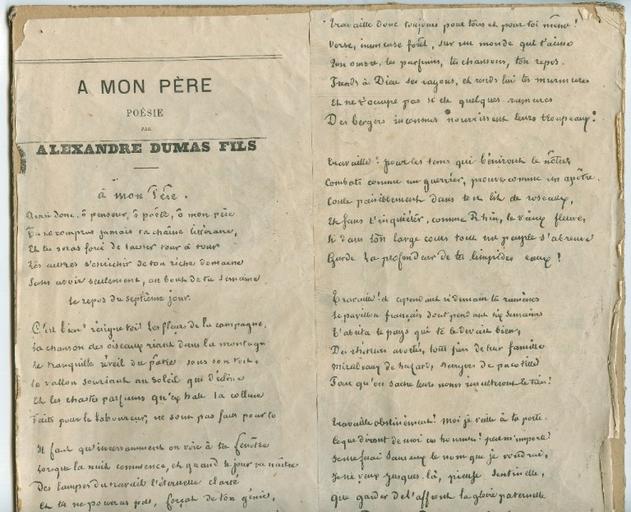 A MON PÈRE
POÉSIE
PAR
ALEXANDRE DUMAS FILS
à mon Père.
donc, ô penseur, ô poëte, ô mon père
Tu ne rompras jamais ta chaîne littéraire,
Et tu seras forcé de laisser tour à tour
Les autres s'enrichir de ton riche domaine
Sans avoir seulement, au bout de ta semaine
le repos du septième jour.
C'est bien! résigne toi! les fleurs de la campagne,
La chanson des oiseaux riant dans la montagne
Le tranquille réveil du sous son toit,
Le vallon souriant au soleil qui
Et les chastes parfums qu'exhale la colline
Faits pour le laboureur, ne sont pas faits pour to
Il faut qu'incessamment on voie à ta fenêtre
Lorsque la nuit commence, et quand le jour va naître
Des lampes du travail l'éternelle clarté
Et tu ne pourras pas, forçat de ton génie,
Travaille donc toujours pour tous et pour toi même!
Verse, immense forêt, sur un monde qui t'aime
Ton ombre, tes parfums, tes chansons, ton repos.
Prends à Dieu ses rayons, et rends lui tes murmures
Et ne t'occupe pas si de quelques ramures
Des bergers inconnus nourrissent leurs troupeaux!
Travaille! pour les tems qui béniront le nôtre,
Combats comme un guerrier, prouve comme un apôtre.
Coule paisiblement dans ton lit de roseaux,
Et sans t'inquiéter, comme Rhin, le vieux fleuve,
Si dans ton large cours tout un peuple s'abreuve
Garde la profondeur de tes limpides eaux!
Travaille! et cependant si demain tu ramènes
Le pavillon français dont pendant six semaines
T'abrita le pays qui te le devait bien,
Des chétifs avortés, tout fiers de leur famille
Mirabeaux de hazard, de pacotille
Travaille obstinément! Moi je veille à ta porte.
Ce que diront de moi ces hommes! peu m'importe!
Je me ferai sans eux le nom que je voudrai,
Je ne veux jusques là, pieuse sentinelle,
Que garder de l'affront la gloire paternelle